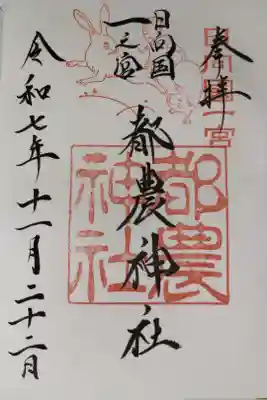 奉拝
日向国一之宮
日向国
一之宮
都農神社
都農
神社
令和七年十一月二十二日